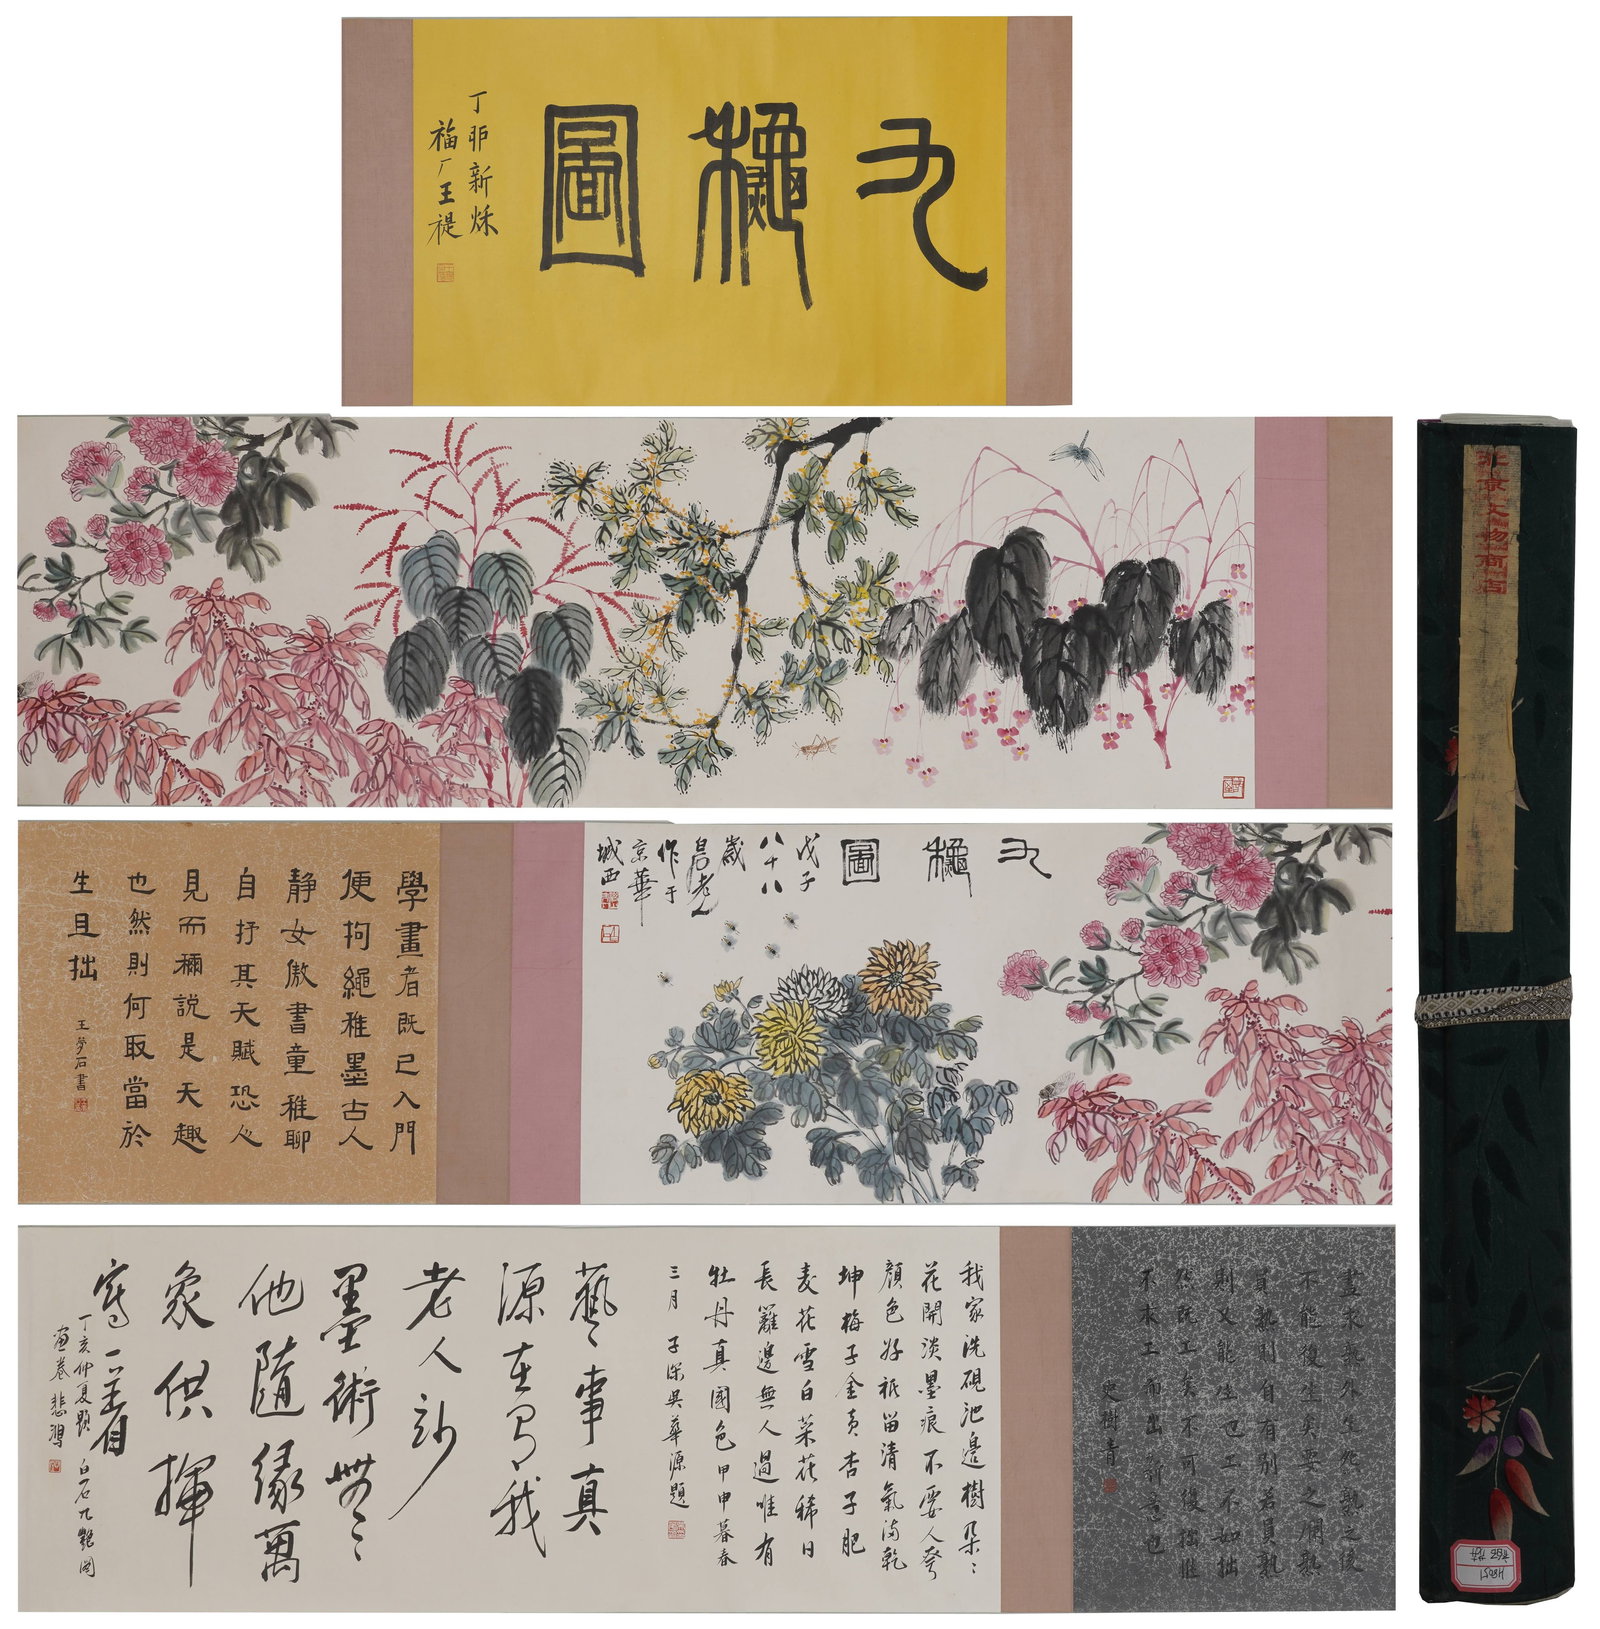 九龝圖
丁卯新秌
福厂王禔
九龝圖
戊子
八十八
歲
白石老人
作于
京華
城西
學畫者既已入門
便拘繩稚墨古人
静女傲書童稚聊
自抒其天賦恐心
見而禰說是天趣
也然則何取當於
生且拙
王夢石書
畫求熟外生然熟之後
不能復生矣要之爛熟
員熟則自有別若員熟
則又能生也工不如拙
然既工矣不可復拙惟
不求工而出新意也
史樹青
我家洗硯池邊樹朶〻
花開淡墨痕不要人夸
顏色好祇留清氣滿乾
坤梅子金黃杏子肥
麦花雪白菜花稀日
長籬邊無人過唯有
牡丹真國色甲申暮春
三月子深吳華源題
藝〻事真
源在我
老人
墨術無〻
他隨緣萬
象供揮
寫
丁亥仲夏題白石九艷圖
畫卷悲鴻
北京文物商店